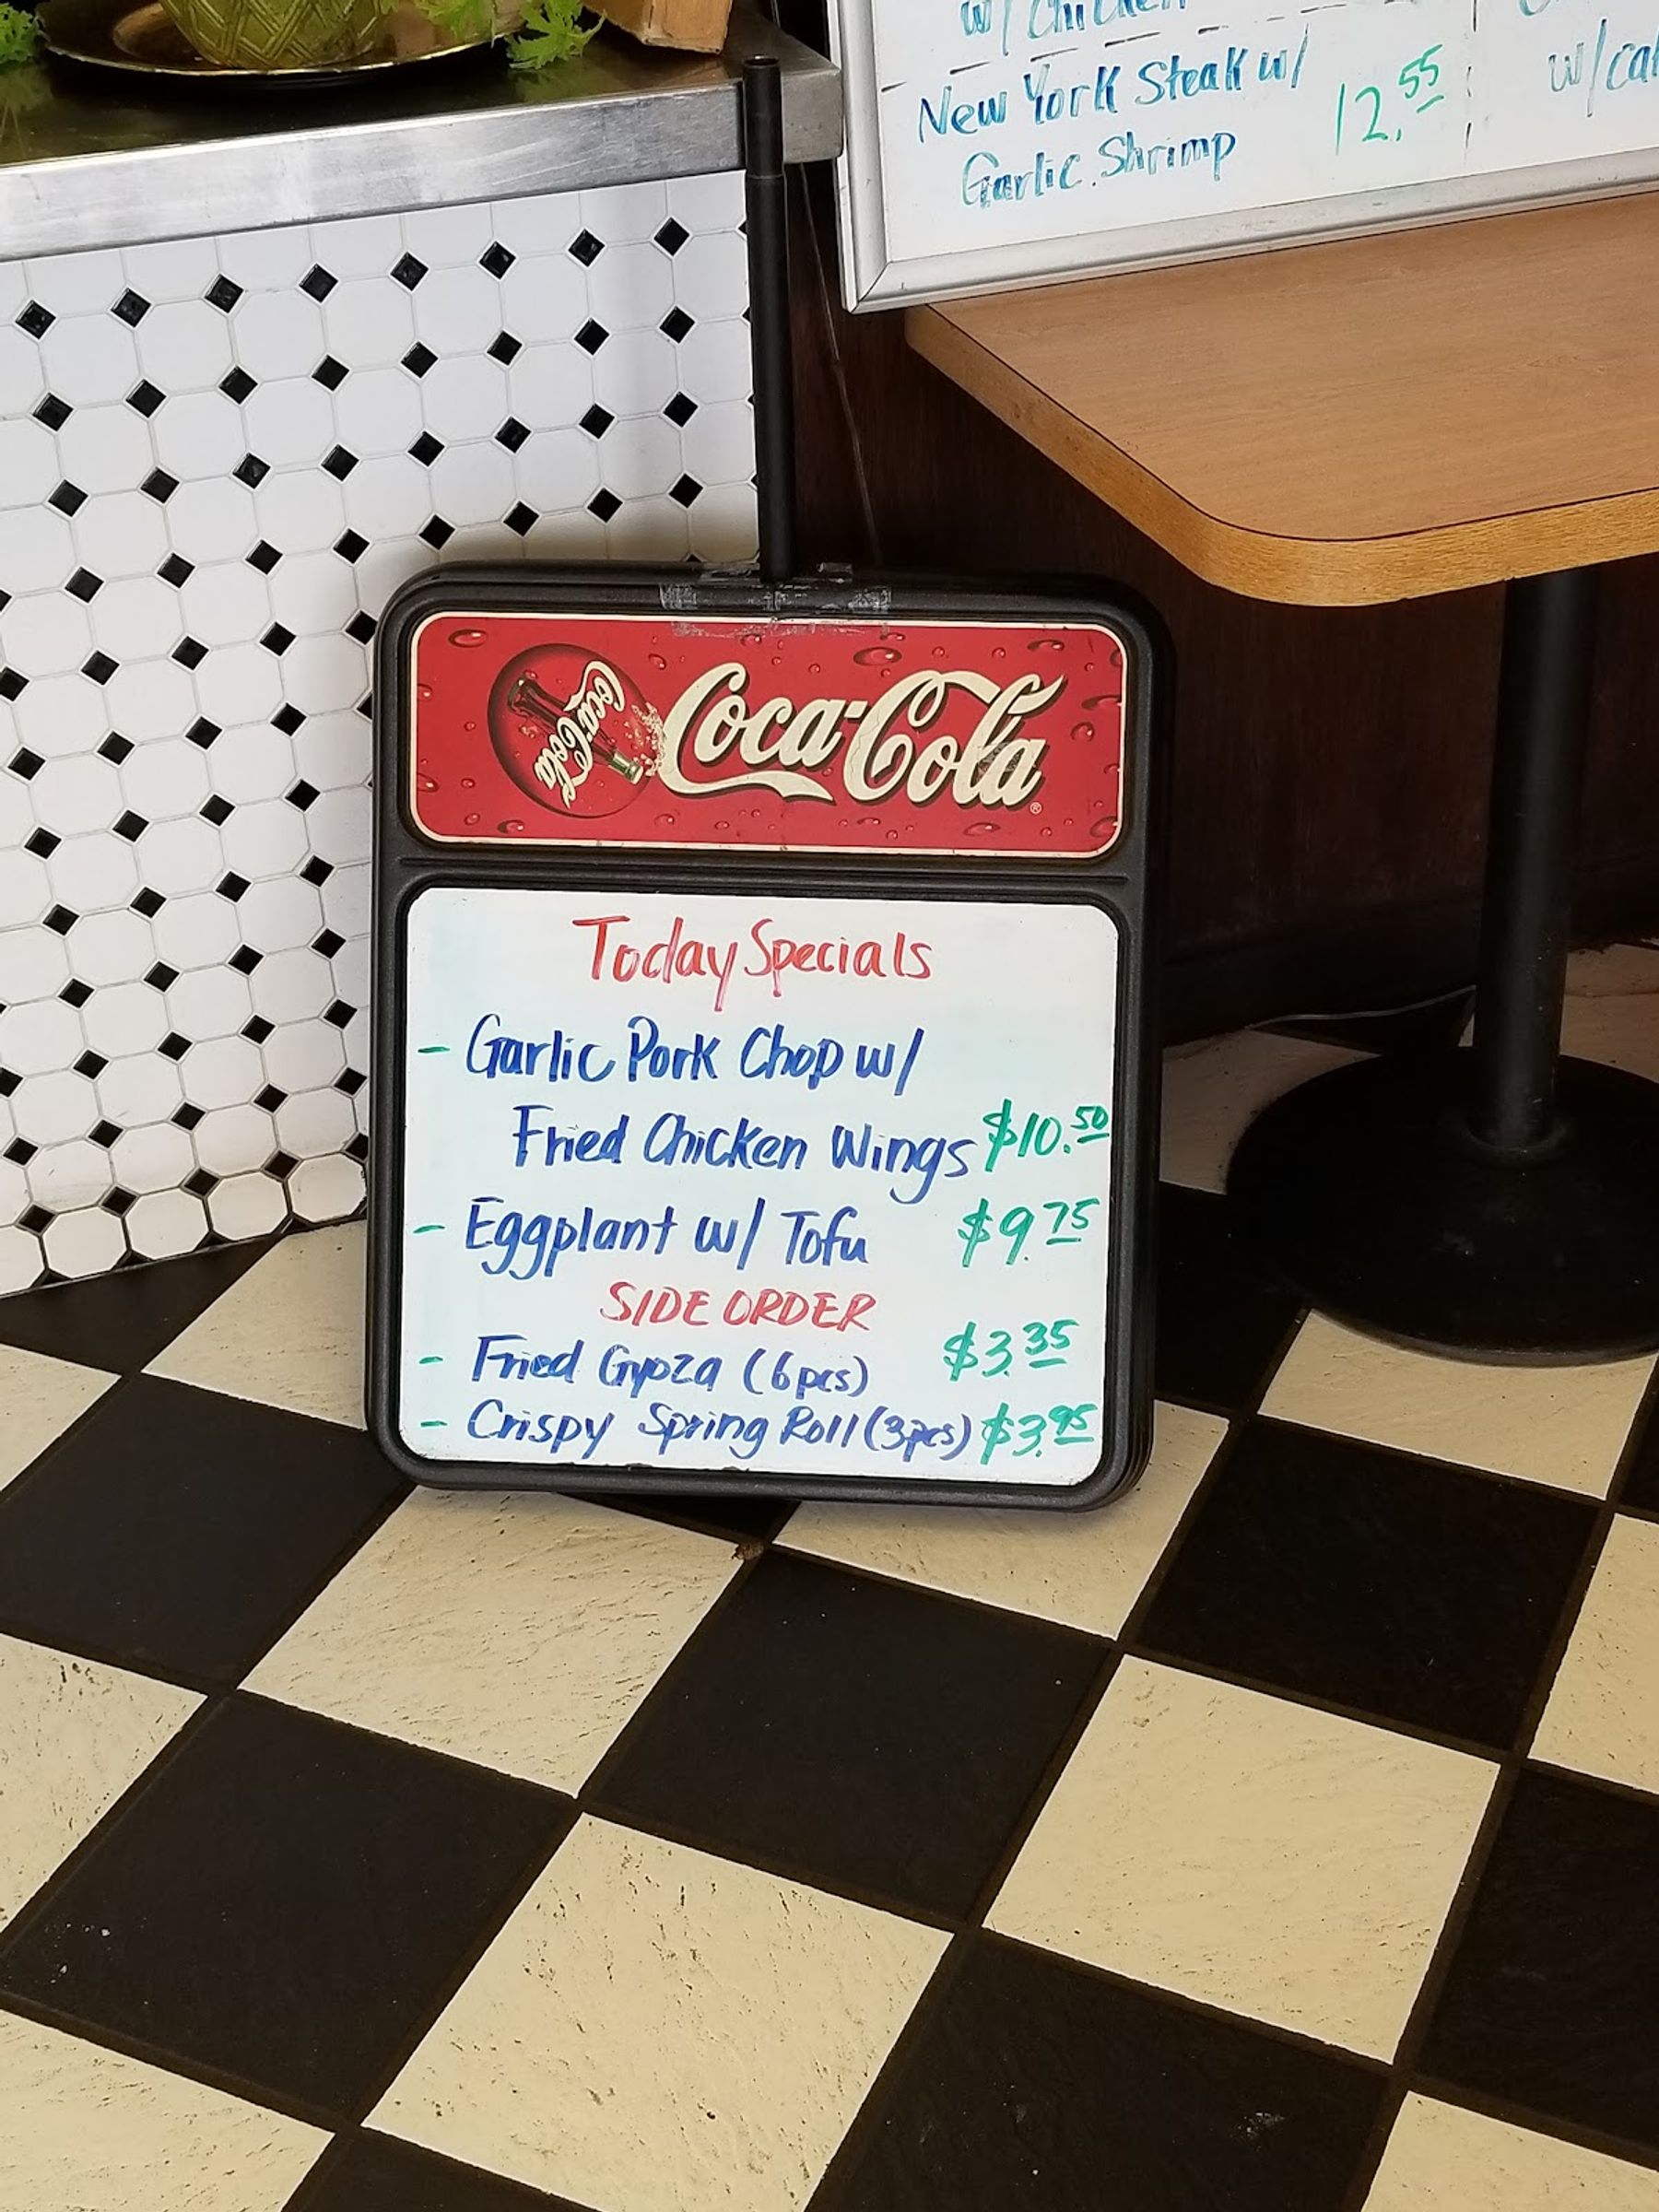 w/ Chicken
New York Steak w/
Garlic Shrimp
12.55
Coca-Cola
Coca-Cola
Today Specials
- Garlic Pork Chop w/
Fried Chicken Wings $10.50
- Eggplant w/ Tofu $9.75
SIDE ORDER
- Fried Gyoza (6pcs) $3.35
- Crispy Spring Roll (3pcs) $3.95